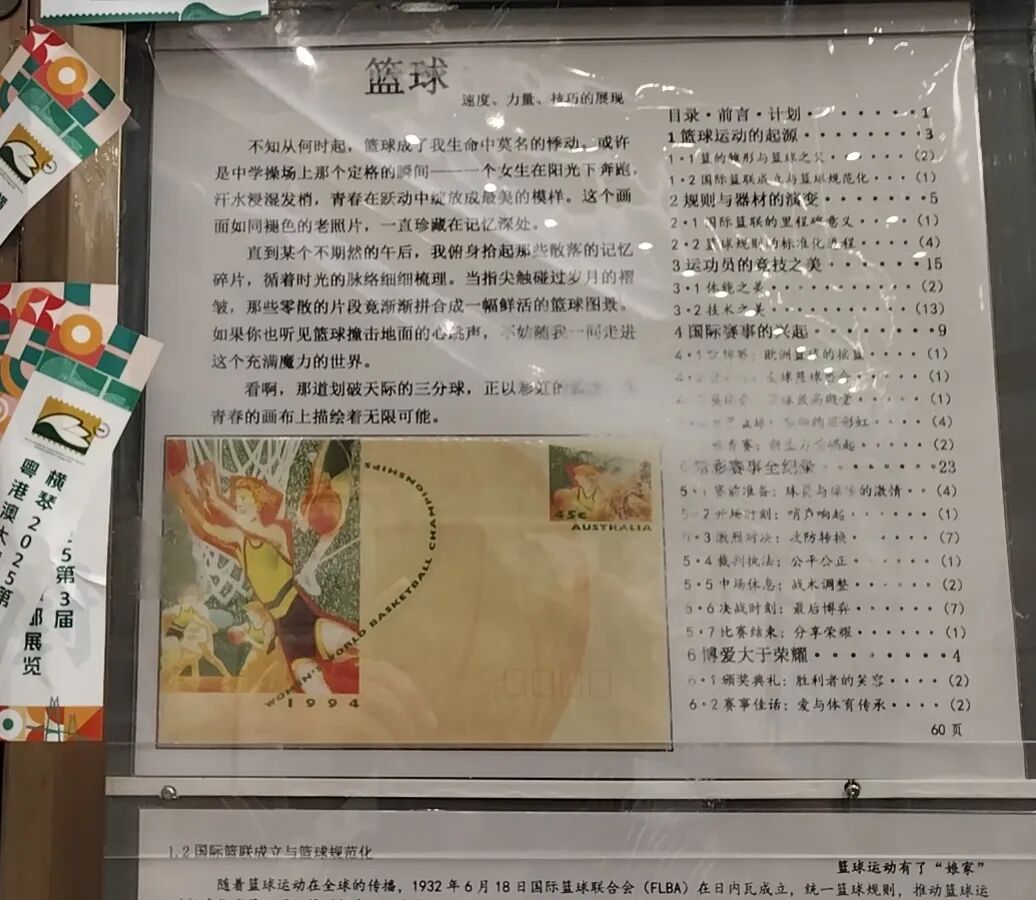 篮球
速度、力量、技巧的展现
不知从何时起，篮球成了我生命中莫名的悸动。或许
是中学操场上那个定格的瞬间——一个女生在阳光下奔跑，
汗水浸湿发梢，青春在跃动中绽放成最美的模样。这个画
面如同褪色的老照片，一直珍藏在记忆深处。
直到某个不期然的午后，我俯身拾起那些散落的记忆
碎片，循着时光的脉络细细梳理。当指尖触碰过岁月的褶
皱，那些零散的片段竟渐渐拼合成一幅鲜活的篮球图景。
如果你也听见篮球撞击地面的心跳声，不妨随我一同走进
这个充满魔力的世界。
看啊，那道划破天际的三分球，正以彩虹的
青春的画布上描绘着无限可能。
目录·前言·计划········1
1 篮球运动的起源········3
1·1 篮的雏形与篮球之父······(2)
1·2 国际篮联成立与篮球规范化····(1)
2 规则与器材的演变·······5
2·1 国际篮联的里程碑意义·····(1)
2·2 篮球规则的标准化进程·····(4)
3 运功员的竞技之美·······15
3·1 体能之美··········(2)
3·2 技术之美··········(13)
4 国际赛事的兴起········9
4·1 欧洲篮球的摇篮····(1)
(1)
(1)
(4)
(2)
精彩赛事全纪录·······23
5·1 赛前准备：球员与球迷的激情··(4)
5·2 开场时刻：哨声响起······(1)
5·3 激烈对决：攻防转换······(7)
5·4 裁判执法：公平公正······(1)
5·5 中场休息：战术调整······(2)
5·6 决战时刻：最后博弈······(7)
5·7 比赛结束：分享荣耀······(1)
6 博爱大于荣耀·········4
6·1 颁奖典礼：胜利者的笑容····(2)
6·2 赛事佳话：爱与体育传承····(2)
60 页
WOMEN'S WORLD BASKETBALL CHAMPIONSHIPS
1994
45c
AUSTRALIA
横琴 2025第3届
粤港澳大
邮展览
2025第
1.2 国际篮联成立与篮球规范化
篮球运动有了“娘家”
随着篮球运动在全球的传播，1932 年 6 月 18 日国际篮球联合会（FLBA）在日内瓦成立，统一篮球规则，推动篮球运